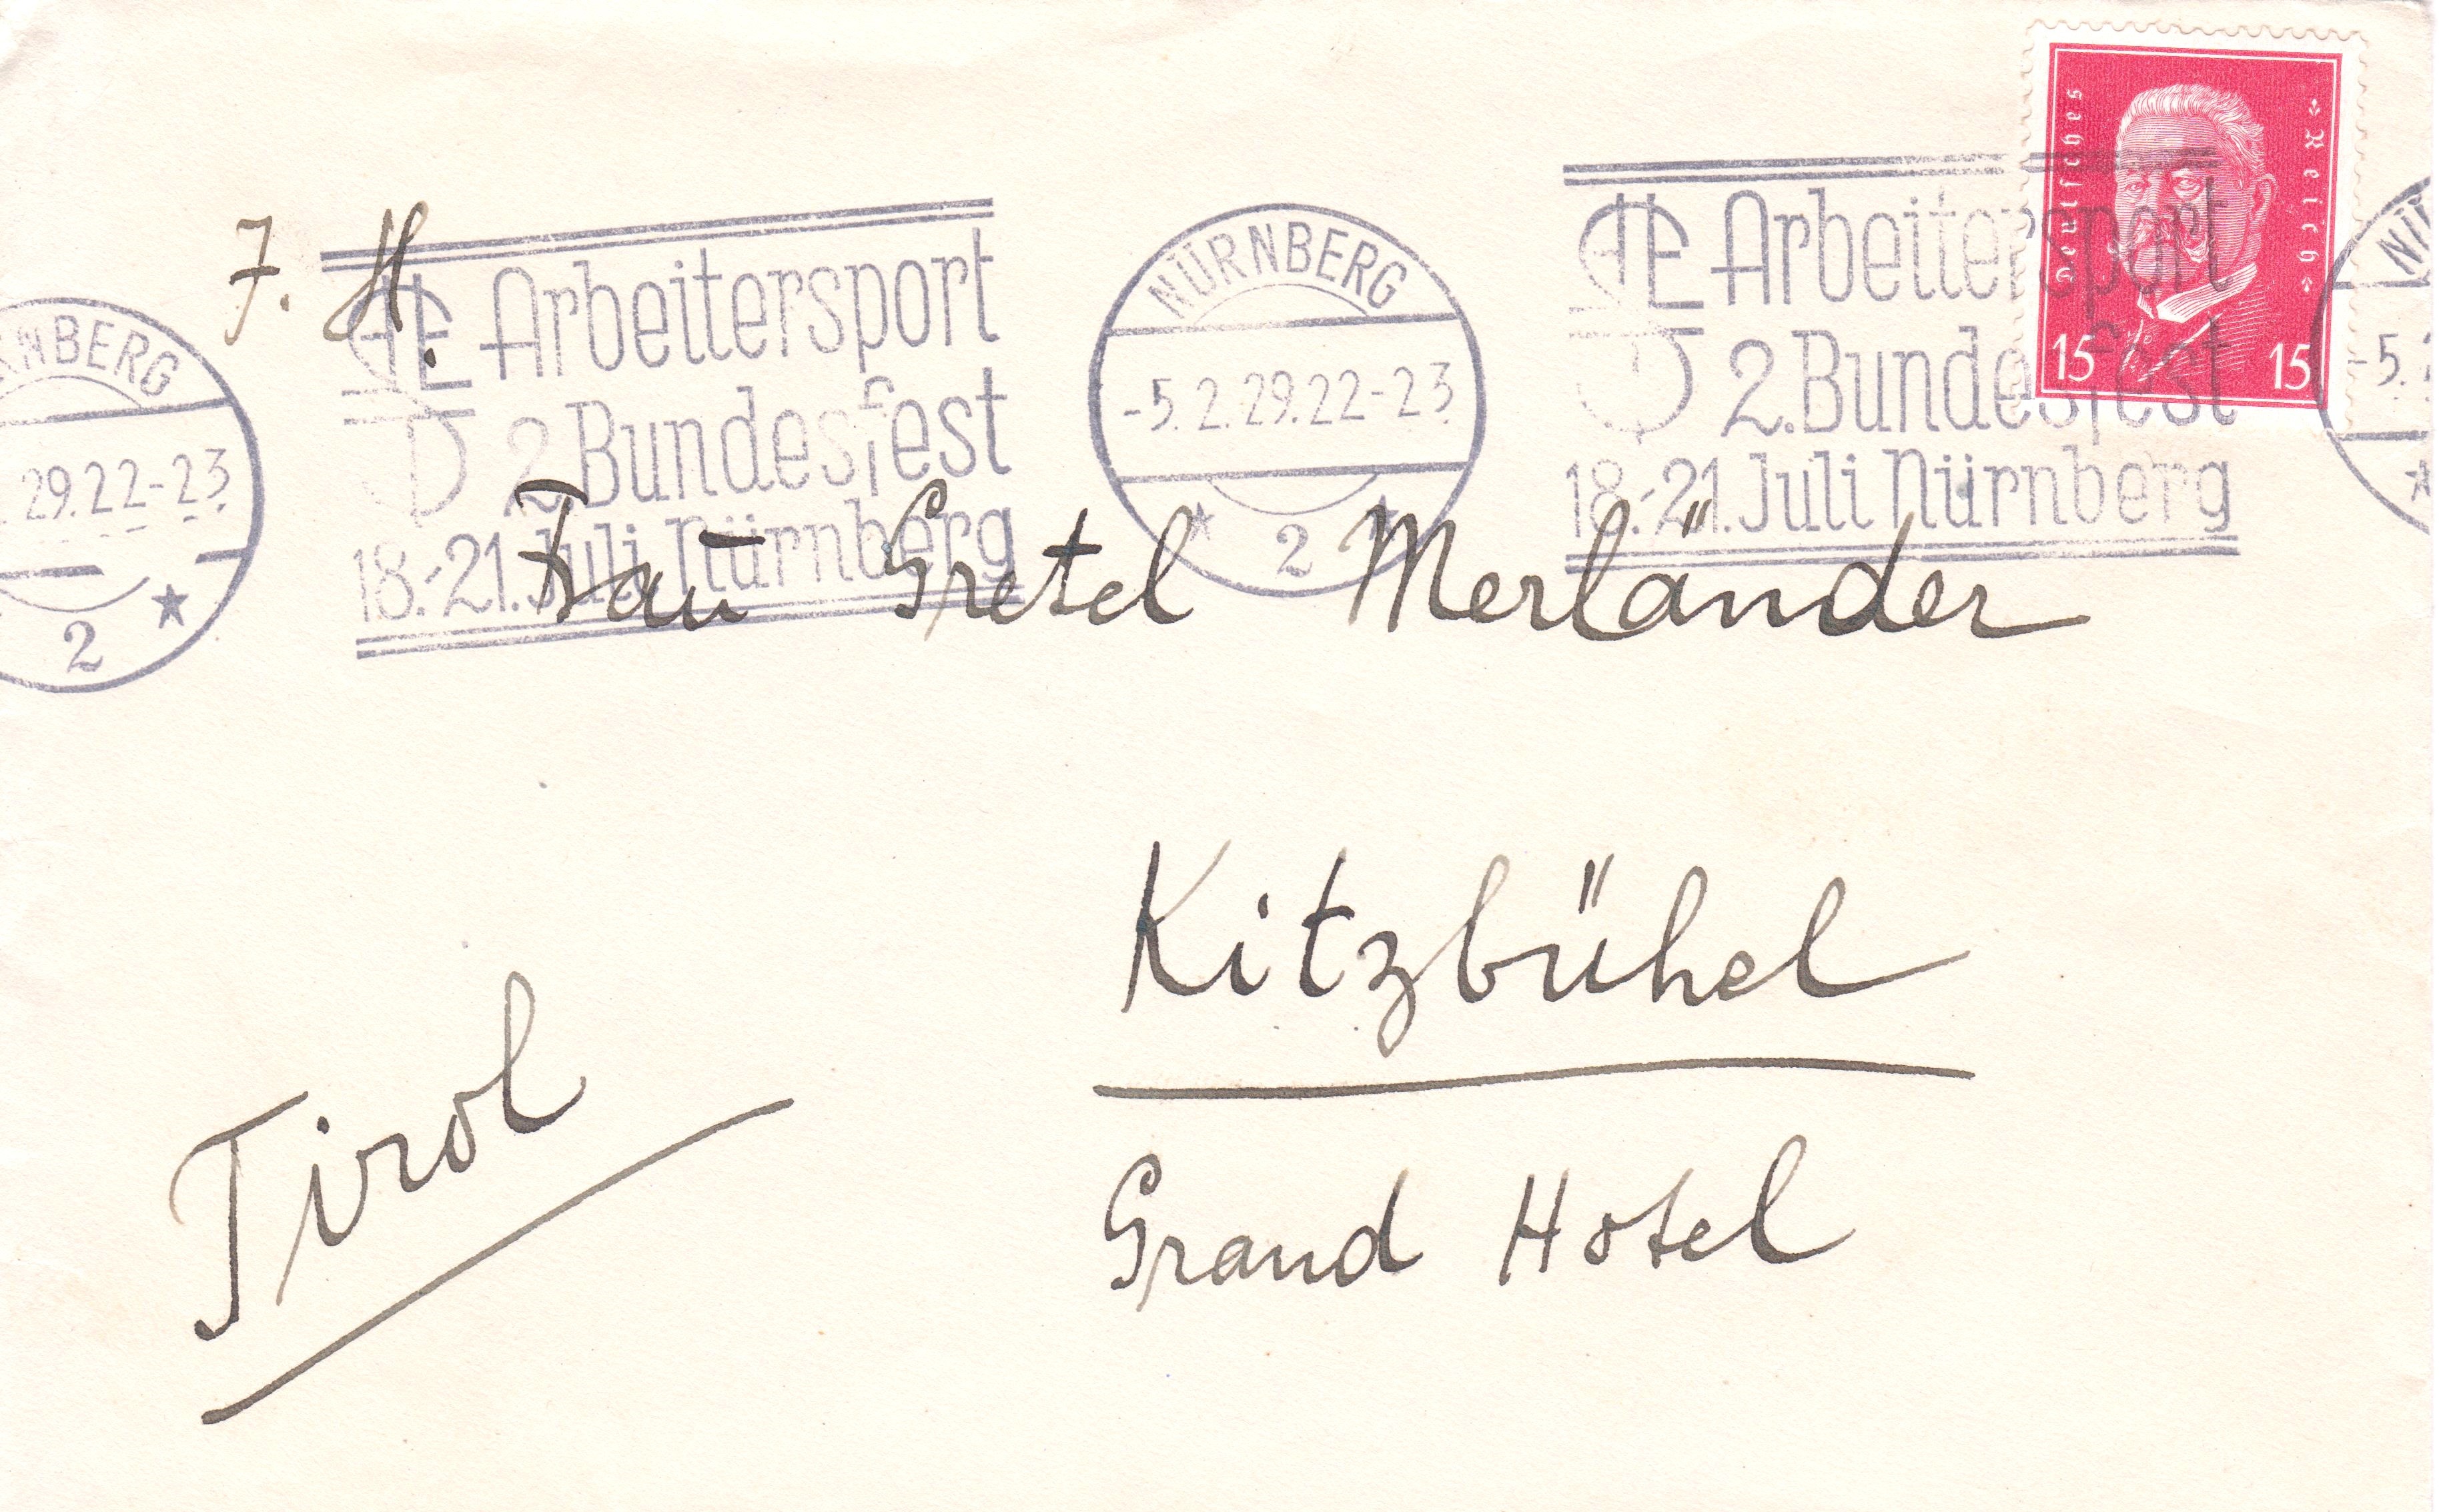 Deutsches Reich
15 15
J. H.
Arbeitersport
2. Bundesfest
18.-21. Juli Nürnberg
NÜRNBERG
-5.2.29.22-23
2
Arbeitersport
2. Bundesfest
18.-21. Juli Nürnberg
NBERG
29.22-23
2
-5.
Frau Gretel Merländer
Kitzbühel
Tirol
Grand Hotel